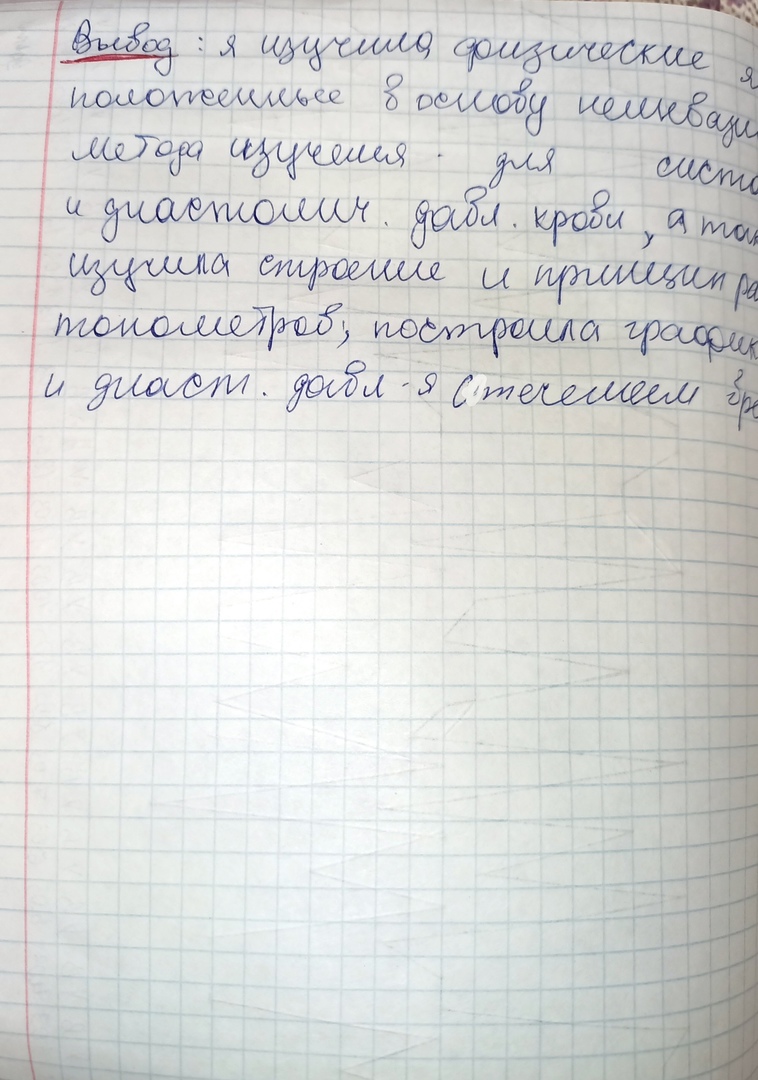 Вывод: я изучила физические я
положенные в основу неинвази
метода изучения для систо
и диастолич. давл. крови, а так
изучила строение и принцип ра
тонометров; построила график
и диаст. давл-я с течением вре